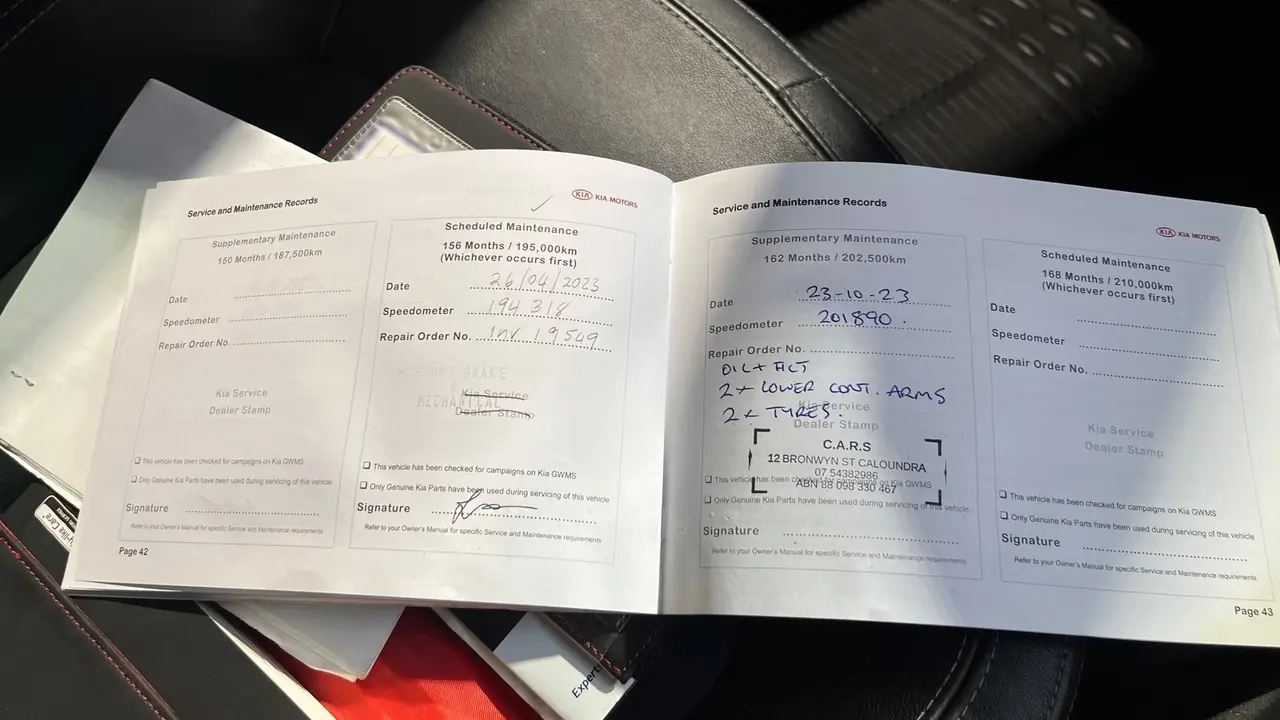 Service and Maintenance Records
KIA KIA MOTORS
Supplementary Maintenance
150 Months / 187,500km
Date
Speedometer
Repair Order No.
Kia Service
Dealer Stamp
❑ This vehicle has been checked for campaigns on Kia GWMS
❑ Only Genuine Kia Parts have been used during servicing of this vehicle
Signature
Refer to your Owner's Manual for specific Service and Maintenance requirements
Page 42
Scheduled Maintenance
156 Months / 195,000km
(Whichever occurs first)
Date 26/04/2023
Speedometer 194 318
Repair Order No. Inv 19549
BRAKE
&
MECHANICAL
Kia Service
Dealer Stamp
❑ This vehicle has been checked for campaigns on Kia GWMS
❑ Only Genuine Kia Parts have been used during servicing of this vehicle
Signature
Refer to your Owner's Manual for specific Service and Maintenance requirements
Service and Maintenance Records
KIA KIA MOTORS
Supplementary Maintenance
162 Months / 202,500km
Date 23-10-23
Speedometer 201890.
Repair Order No.
OIL + FILT
2 x LOWER CONT. ARMS
2 x TYRES.
Kia Service
Dealer Stamp
C.A.R.S
12 BRONWYN ST CALOUNDRA
07 54382986
ABN 88 098 330 467
❑ This vehicle has been checked for campaigns on Kia GWMS
❑ Only Genuine Kia Parts have been used during servicing of this vehicle
Signature
Refer to your Owner's Manual for specific Service and Maintenance requirements
Scheduled Maintenance
168 Months / 210,000km
(Whichever occurs first)
Date
Speedometer
Repair Order No.
Kia Service
Dealer Stamp
❑ This vehicle has been checked for campaigns on Kia GWMS
❑ Only Genuine Kia Parts have been used during servicing of this vehicle
Signature
Refer to your Owner's Manual for specific Service and Maintenance requirements
Page 43
Expert